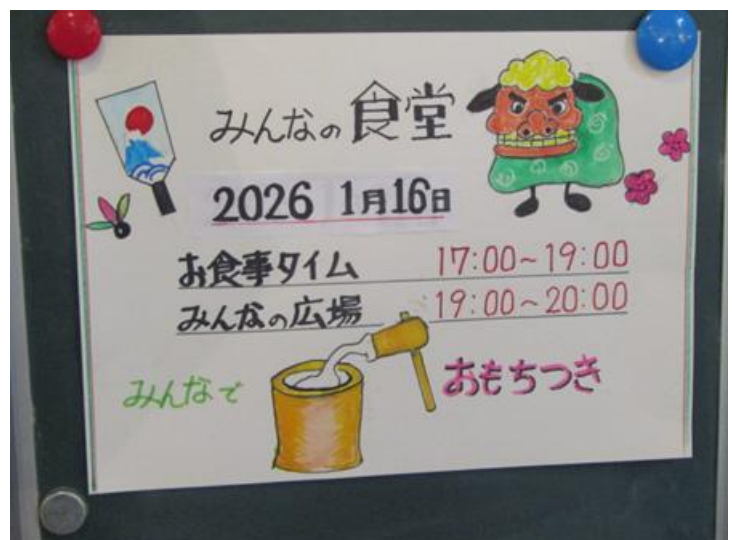 みんなの食堂
2026 1月16日
お食事タイム 17:00~19:00
みんなの広場 19:00~20:00
みんなで おもちつき